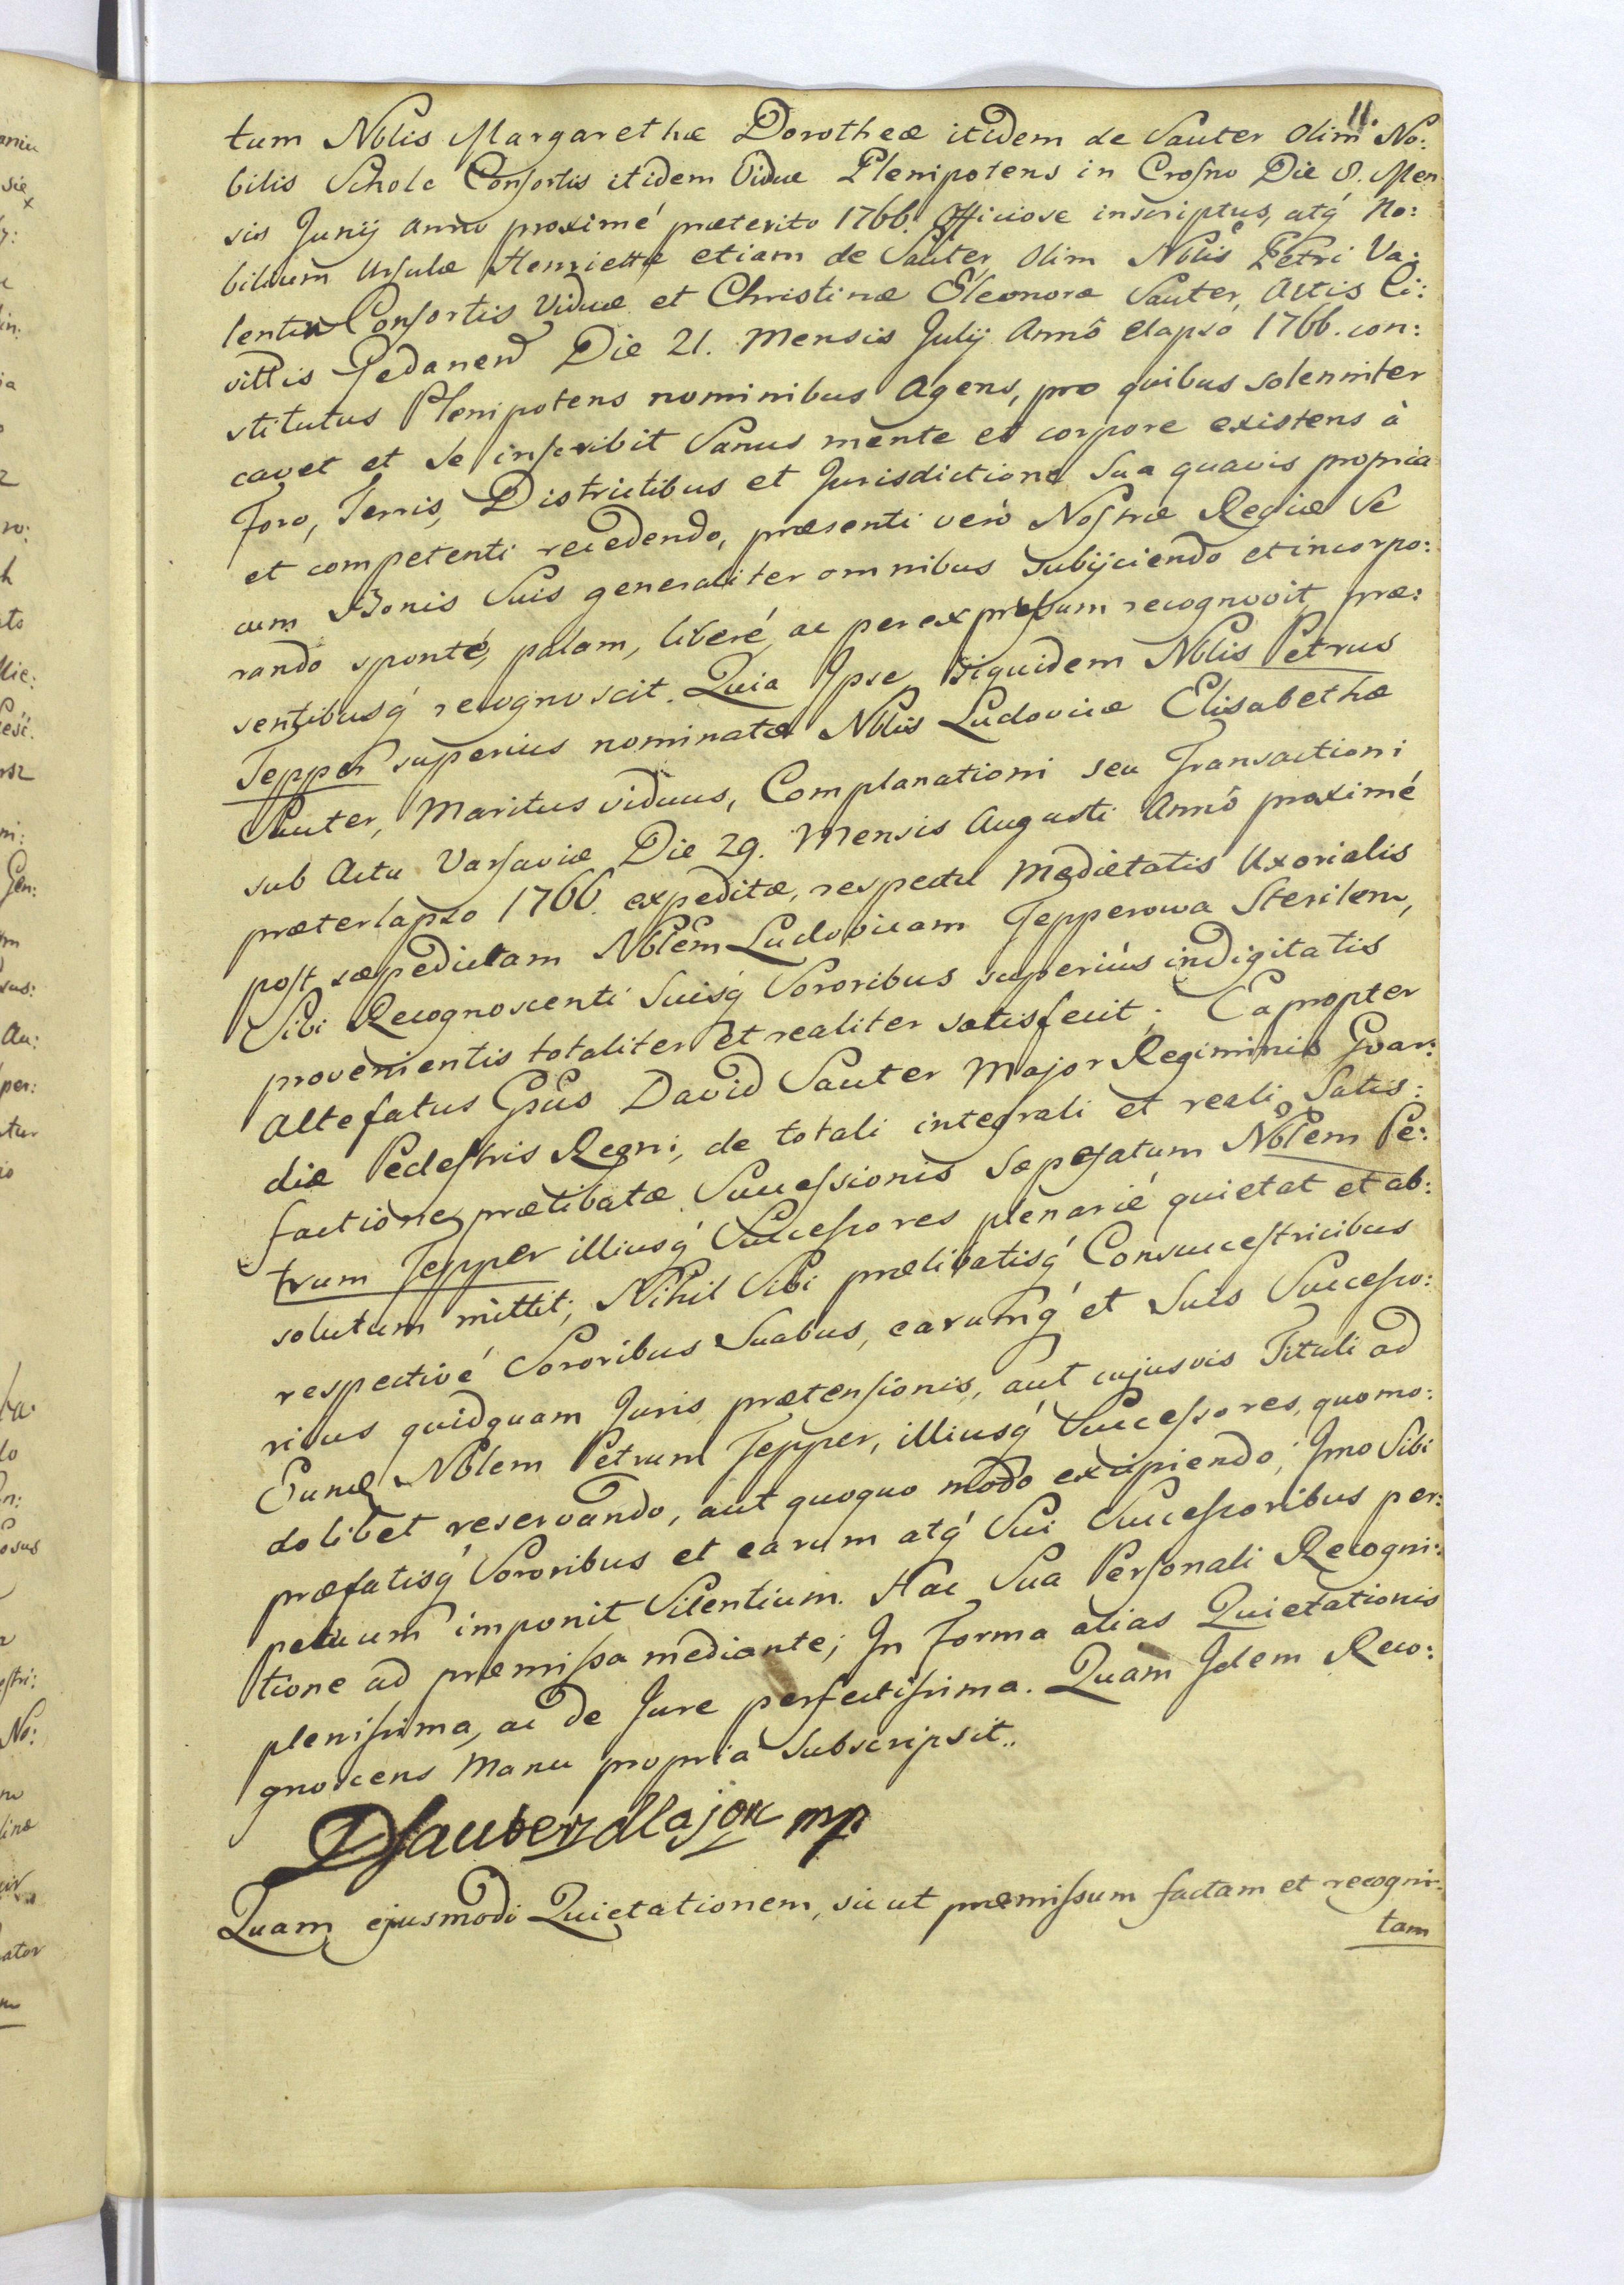 11.
tum Nblis Margarethæ Dorotheæ itidem de Sauter olim No:
bilis Schole Consortis itidem Viduæ Plenipotens in Crosno Die 8. Men
sis Junij Anno proximé præterito 1766. Officiose inscriptus, atq́ No:
bilium Ursulæ Henriettæ etiam de Sauter, olim Nblis Petri Va:
lentin Consortis Viduæ et Christinæ Eleonoræ Sauter, Actis Ci:
vilis Gedanen Die 21. Mensis Julij Annô elapsô 1766. con:
stitutus Plenipotens nominibus Agens, pro quibus solenniter
cavet et se inscribit Sanus mente et corpore existens à
Foro, Terris, Districtibus et Jurisdictione Sua quavis propria
et competenti recedendo, præsenti verò Nostræ Regiæ Se
cum Bonis Suis generaliter omnibus Subijciendo et incorpo:
rando sponté, palam, liberé, ac per expressum recognovit, præ:
sentibusq́ recognoscit. Quia Ipse, siquidem Nblis Petrus
Tepper superius nominatæ Nblis Ludovicæ Elisabethæ
Sauter, Maritus viduus, Complanationi seu Transactioni
sub Actu Varsaviæ Die 29. Mensis Augusti Annô proximé
præterlapso 1766. expeditæ, respectu Medietatis Uxorialis
post sæpedictam Nblem Ludovicam Tepperowa Sterilem,
Sibi Recognoscenti Suisq́ Sororibus superiùs indigitatis
provenientis totaliter et realiter satisfecit; Eapropter
Altefatus Gsus David Sauter Major Regiminis Gvar:
diæ Pedestris Regni, de totali integrali et reali Satis:
factione prælibatæ Successionis Sæpefatum Nblem Pe:
trum Tepper illiusq́ Successores plenarié quietat et ab:
solutum mittit; Nihil Sibi prælibatisq́ Consuccestricibus
respectivé Sororibus Suabus, earumq́ et Suis Successo:
ribus quidquam Juris, prætensionis, aut cujusvis Tituli ad
Eund Nblem Petrum Tepper, illiusq́ Successores, quomo:
dolibet reservando, aut quoquo modo excipiendo; Imo Sibi
præfatisq́ Sororibus et earum atq́ Sui Successoribus per:
petuum imponit Silentium. Hac Sua Personali Recogni:
tione ad præmissa mediante; In Forma alias Quietationis
plenissima, ac de Jure perfectissima. Quam Idem Reco:
gnoscens Manu propriâ Subscripsit..
DSauter Major mp
Quam ejusmodi Quietationem, sicut præmissum factam et recogni:
tam